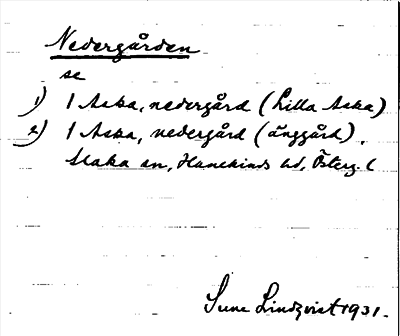 Nedergården
se
1) 1 Aska, nedergård (Lilla Aska)
2) 1 Aska, nedergård (änggård),
Slaka sn, Hanekinds hd, Österg. l
Sune Lindqvist 1931.